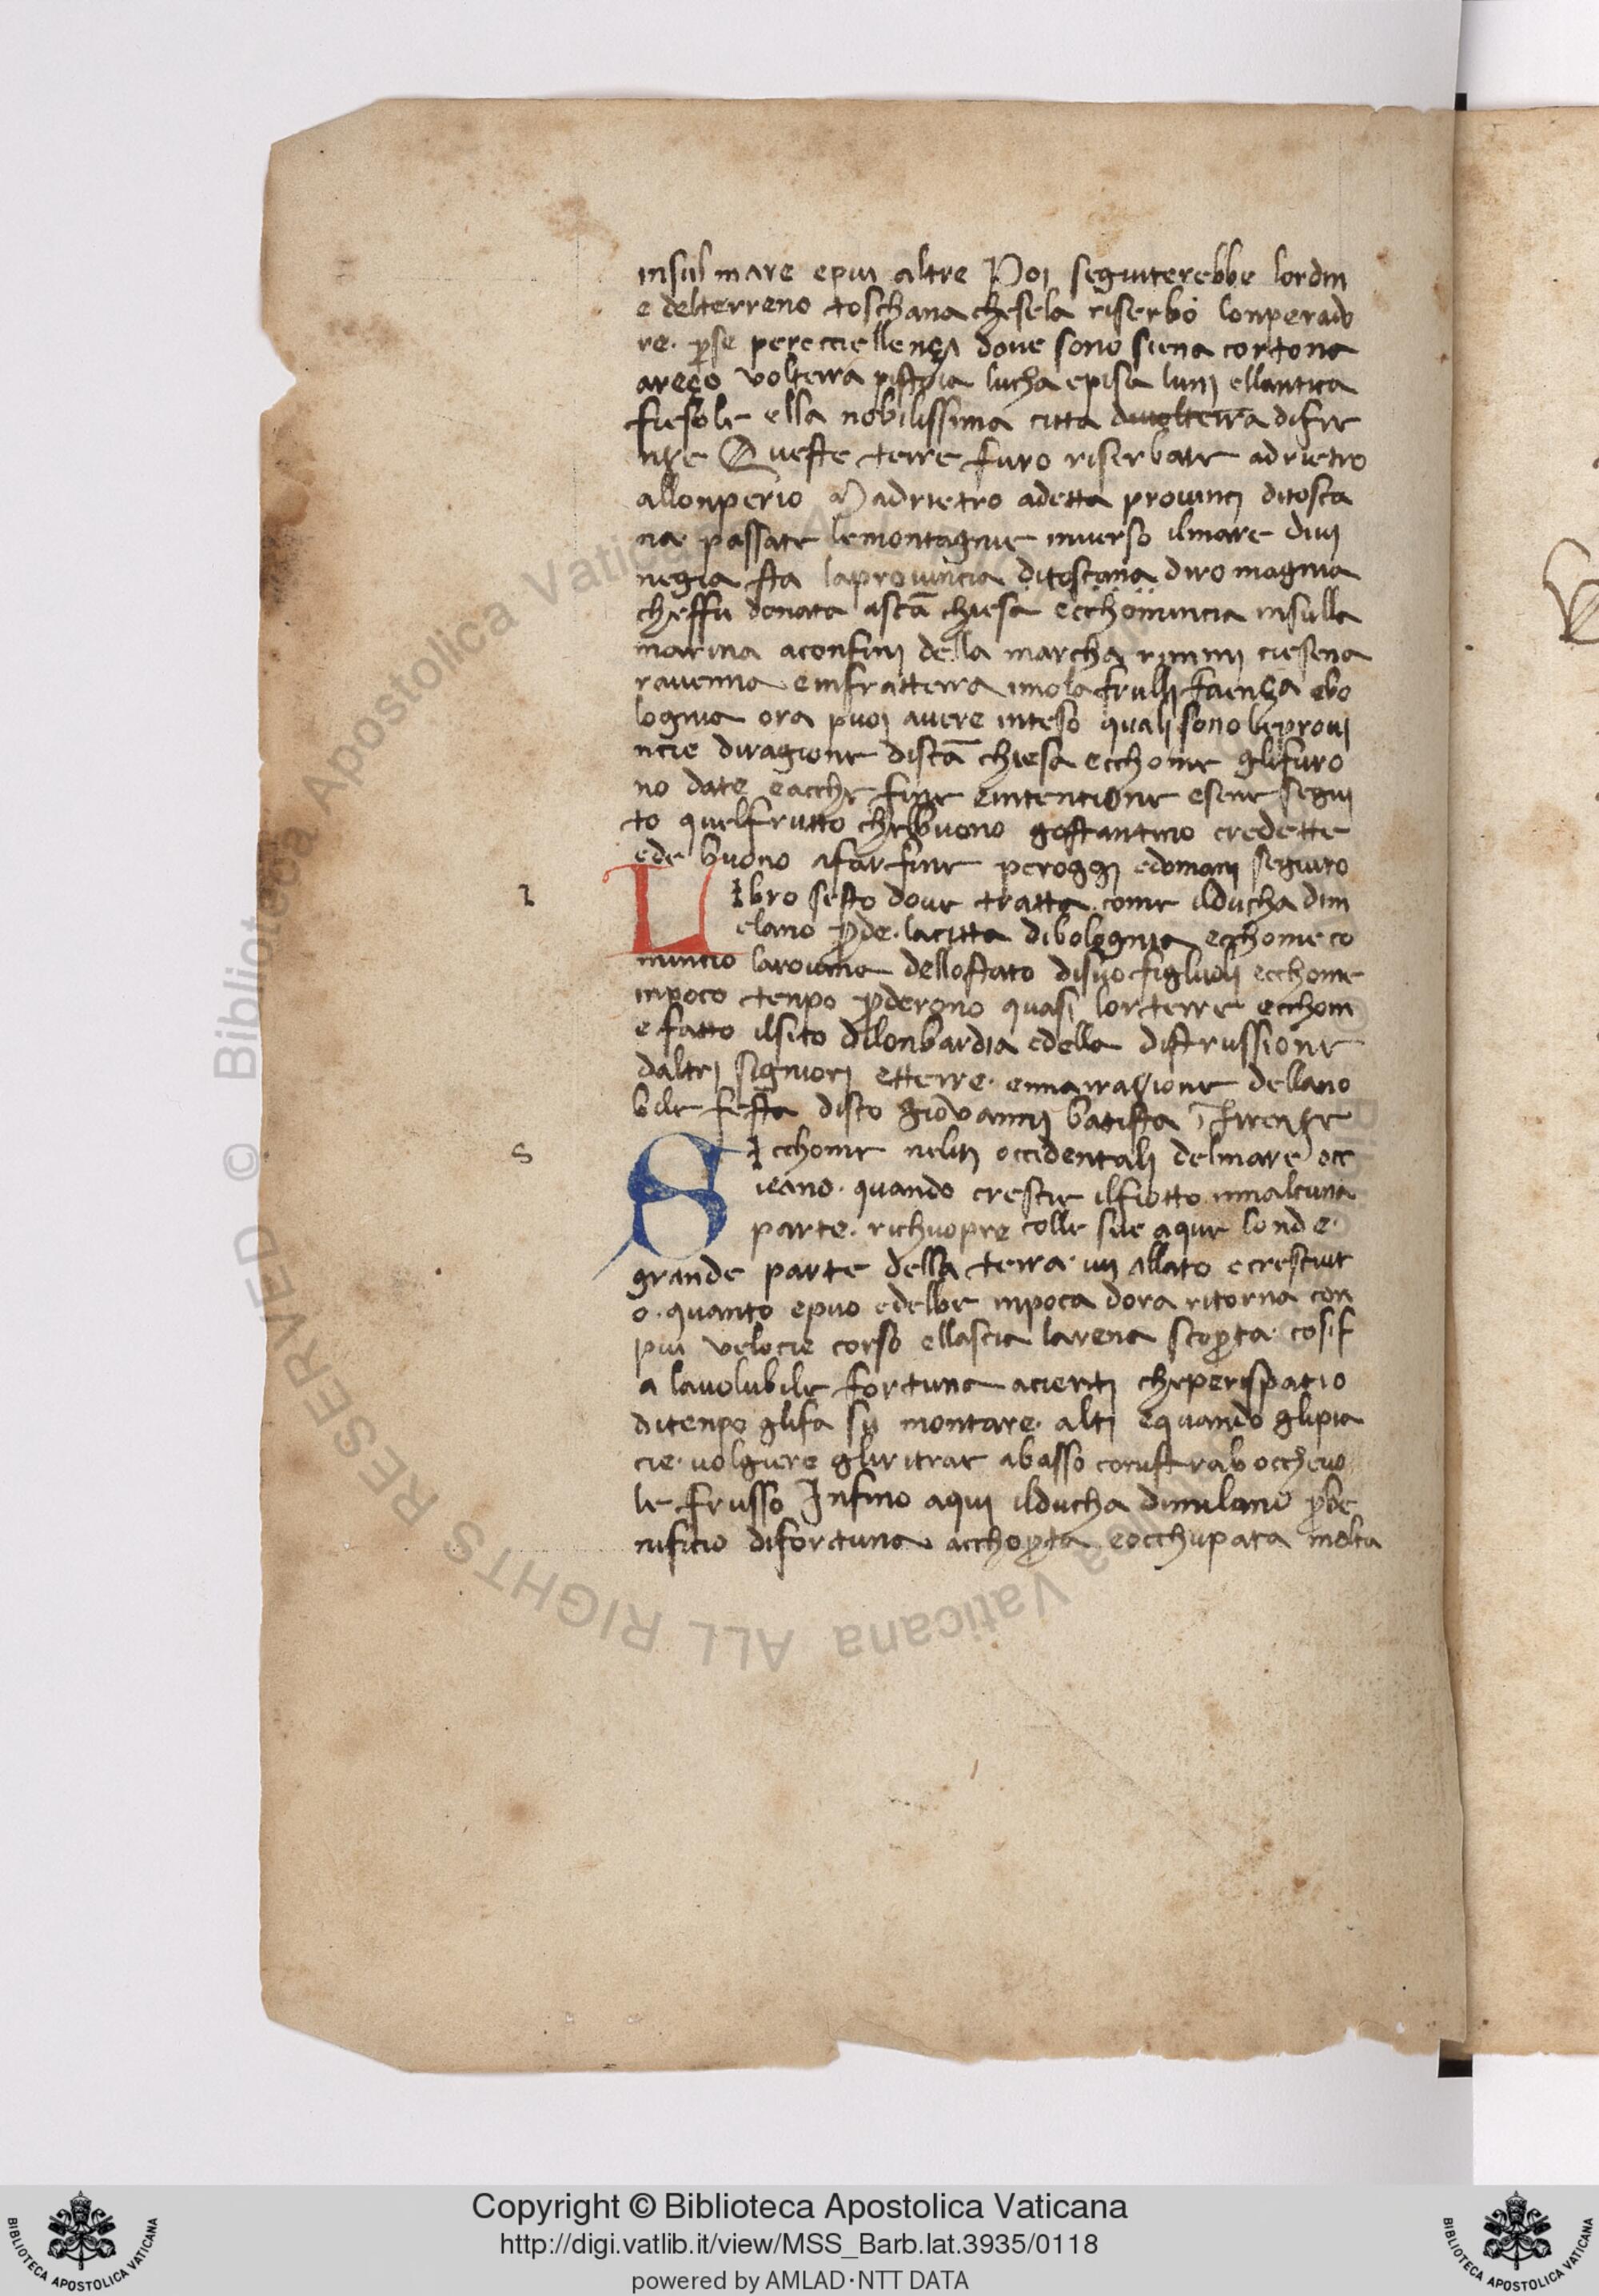 insul mare epiu altre Poi seguiterebbe lordin
e delterreno toschana chesela riserbo lonperado
re. p̲se pereccellença dove sono siena cortona
areço volterra pistoia lucha episa luni ellantica
fiesole ella nobilissima citta divolterra difire
nçe Queste terre furo riserbate adrietro
allonperio Padrietro adetta provinci ditosca
na passate lemontagnie inverso ilmare divi
negia sta laprovincia ditoscana diromagnia
cheffu donata ascā chiesa ecchomincia insulla
marina aconfini della marcha rimini ciesena
ravenna einfratterra imola frulli faença ebo
lognia ora puoi avere inteso quali sono leprovi
ncie diragione discā chiesa ecchome glifuro
no date eacche fine eintencione esene segui
to quelfrutto chelbuono gostantino credette
ede buono afar fine peroggi edomani seguiro
l
Libro sesto dove tratta come ilducha dim
elano p̲de. lacitta dibolognia ecchome co
mincio larovina dellostato disuo figliuoli ecchome
inpoco tenpo p̲derono quasi lor terre ecchom
e fatto ilsito dilonbardia edella distrussione
daltri signiori etterre. ennarraçione dellano
bile festa disco giovanni batista ī firençe
s
Sicchome neliti occidentali delmare occ
ieano. quando crescie ilfiotto innalcuna
parte. richuopre colle sue aque londe.
grande parte della terra. un allato ecresciut
o. quanto epuo edelbe inpoca dora ritorna con
piu velocie corso ellascia larena scop̲ta. cosi f
a lavolubile fortuna acierti cheperispatio
ditenpo glifa su montare. alti equando glipia
cie. volgiere gliritrae abasso conistrabocchevo
le frusso Infino aqui ilducha dimilano p̲be
nificio difortuna acchop̲ta eocchupata molta
Copyright © Biblioteca Apostolica Vaticana
http://digi.vatlib.it/view/MSS_Barb.lat.3935/0118
powered by AMLAD·NTT DATA
BIBLIOTECA APOSTOLICA VATICANA
BIBLIOTECA APOSTOLICA VATICANA
© Biblioteca Apostolica Vaticana ALL RIGHTS RESERVED